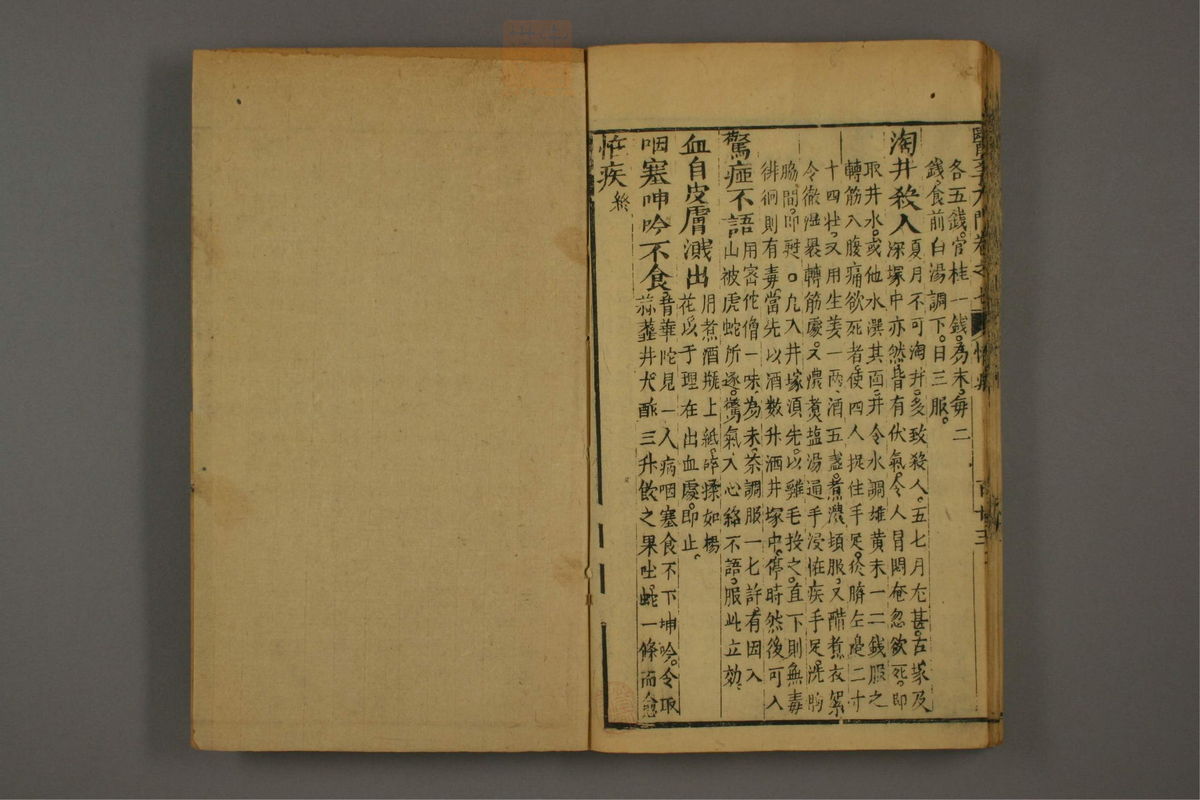 各五錢。官桂一錢。為末。每二
錢食前白湯調下。日三服。
淘井殺人
夏月不可淘井。多致殺人。五七月尤甚。古塚及
深塚中亦然。皆有伏氣。令人冒悶奄忽欲死。即
取井水。或他水潠其面。并令水調雄黃末一二錢服之
轉筋入腹痛欲死者。使四人捉住手足。於臍左邊二寸
十四壯。又用生姜一兩。酒五盞。煮濃頓服。又醋煮衣絮
令徹濕裹轉筋處。又濃煮塩湯通手浸恠疾手足。洗胸
脇間。即甦。○凡入井塚須先以雞毛投之。直下則無毒
徘徊則有毒。當先以酒數升洒井塚中。停時然後可入
驚痖不語
用密佗僧一味。為末。茶調服一七許。有因入
山被虎蛇所逐。驚氣入心絡不語。服此立効。
血自皮膚濺出
用煮酒瓶上紙。碎揉如楊
花。以于理在出血處即止。
咽塞呻吟不食
昔華陀見一人病咽塞食不下坤吟。令取
蒜虀井犬酢三升飲之。果吐蛇一條而愈
恠疾終
百廿三